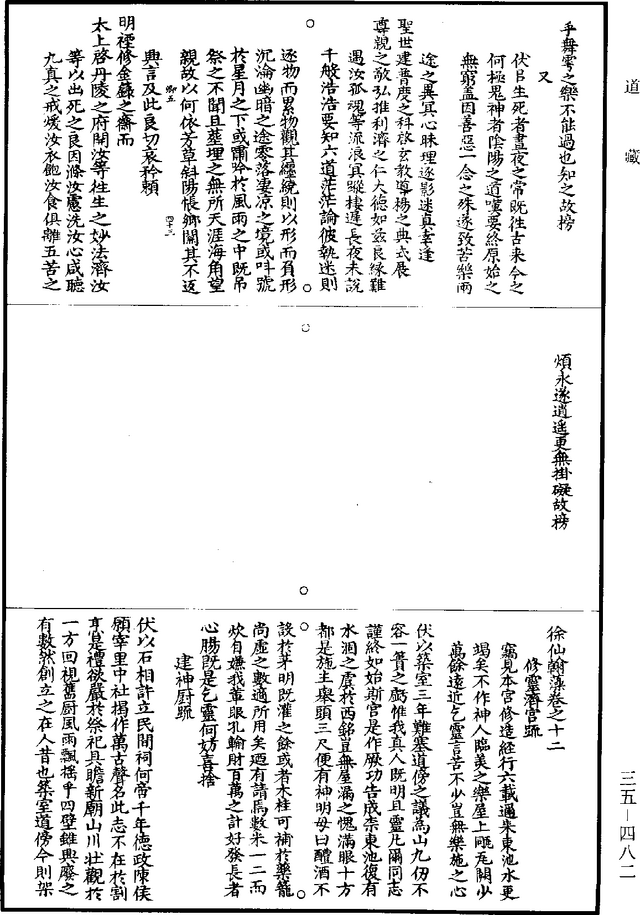 道藏
乎舞雩之樂不能過也知之故榜
又
伏㠯生死者晝夜之常既往古来今之
何極鬼神者陰陽之道嘆要終原始之
無窮盖因善惡一念之殊遂致苦樂兩
途之異冥心昧理逐影迷真幸逢
聖世建普度之科啓玄教導揚之典式展
尊親之敬弘推利濟之仁大德如兹良緣難
遇汝孤魂等流浪冥蹤棲遲長夜未說
千般浩浩要知六道茫茫論彼執迷則
逐物而累物觀其纏繞則以形而負形
沉淪幽暗之途零落凄凉之境或呌號
於星月之下或嘯吟於風雨之中既吊
祭之不聞且墓埋之無所天涯海角望
親故以何依芳草斜陽悵鄉關其不返
興言及此良切哀矜頼
明禋修金籙之齋而
太上啓丹陵之府開汝等徃生之妙法濟汝
等以出死之良因滌汝慮洗汝心咸聽
九真之戒煖汝衣飽汝食俱離五苦之
煩永遂逍遥更無掛礙故榜
徐仙翰藻卷之十二
修靈濟宫疏
竊見本宫修造経行六載過朱東池水更
竭矣不作神人臨美之樂屋上甌尾関少
萬餘遠近乞靈言苦不少豈無樂施之心
伏以築室三年難塞道傍之議為山九仞不
容一簣之虧惟我真人既明且靈凢爾同志
謹終如始斯宫是作厥功告成柰東池復有
水涸之虞於西銘豈無屋漏之愧滿眼十方
都是施主舉頭三尺便有神明毋曰醴酒不
設於茅明既灌之餘或者木柱可補於藥籠
尚虚之數適所用矣廼有請焉數米一二而
炊自嫌我葷眼孔輪財百萬之計好發長者
心腸既是乞靈何妨喜捨
建神厨疏
伏以石相許立民間祠何啻千年徳政陳侯
願宰里中社揭作萬古聲名此志不在於割
烹是禮欲嚴於祭祀具瞻新廟山川壮觀於
一方回視舊厨風雨飄摇乎四壁雖興廢之
有數然創立之在人昔也築室道傍今則架
三五－四八二